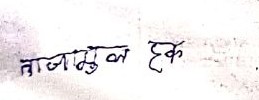 ताजामुल हक